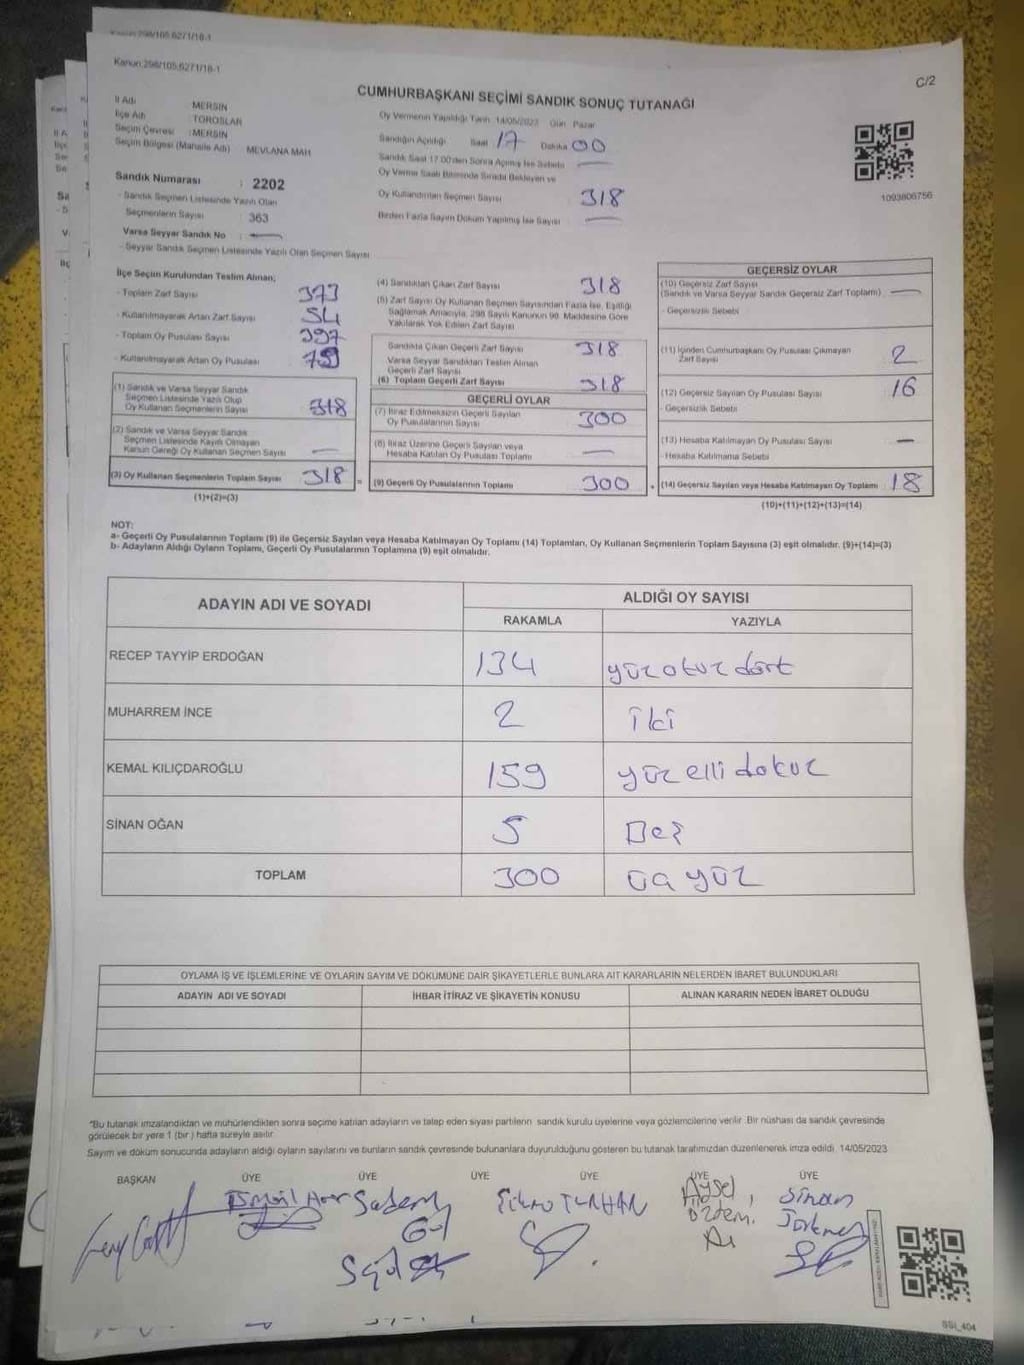 Kanun:298/105,6271/18-1
Kanun:298/105,6271/18-1
C/2
CUMHURBAŞKANI SEÇİMİ SANDIK SONUÇ TUTANAĞI
İl Adı : MERSİN
İlçe Adı : TOROSLAR
Seçim Çevresi : MERSİN
Seçim Bölgesi (Mahalle Adı) MEVLANA MAH
Sandık Numarası : 2202
- Sandık Seçmen Listesinde Yazılı Olan
Seçmenlerin Sayısı : 363
Varsa Seyyar Sandık No : —
- Seyyar Sandık Seçmen Listesinde Yazılı Olan Seçmen Sayısı
Oy Vermenin Yapıldığı Tarih 14/05/2023 Gün Pazar
Sandığın Açıldığı Saat 17 Dakika 00
Sandık Saat 17.00'den Sonra Açılmış İse Sebebi —
Oy Verme Saati Bitiminde Sırada Bekleyen ve
Oy Kullandırılan Seçmen Sayısı 318
Birden Fazla Sayım Döküm Yapılmış İse Sayısı —
1093806756
İlçe Seçim Kurulundan Teslim Alınan;
- Toplam Zarf Sayısı 373
- Kullanılmayarak Artan Zarf Sayısı 54
- Toplam Oy Pusulası Sayısı 397
- Kullanılmayarak Artan Oy Pusulası
(1) Sandık ve Varsa Seyyar Sandık
Seçmen Listesinde Yazılı Olup
Oy Kullanan Seçmenlerin Sayısı 318
(2) Sandık ve Varsa Seyyar Sandık
Seçmen Listesinde Kayıtlı Olmayan
Kanun Gereği Oy Kullanan Seçmen Sayısı —
(3) Oy Kullanan Seçmenlerin Toplam Sayısı 318 =
(1)+(2)=(3)
(4) Sandıktan Çıkan Zarf Sayısı 318
(5) Zarf Sayısı Oy Kullanan Seçmen Sayısından Fazla İse, Eşitliği
Sağlamak Amacıyla, 298 Sayılı Kanunun 98. Maddesine Göre
Yakılarak Yok Edilen Zarf Sayısı
Sandıkta Çıkan Geçerli Zarf Sayısı 318
Varsa Seyyar Sandıktan Teslim Alınan
Geçerli Zarf Sayısı
(6) Toplam Geçerli Zarf Sayısı 318
GEÇERLİ OYLAR
(7) İtiraz Edilmeksizin Geçerli Sayılan
Oy Pusulalarının Sayısı 300
(8) İtiraz Üzerine Geçerli Sayılan veya
Hesaba Katılan Oy Pusulası Toplamı —
(9) Geçerli Oy Pusulalarının Toplamı 300 +
GEÇERSİZ OYLAR
(10) Geçersiz Zarf Sayısı
(Sandık ve Varsa Seyyar Sandık Geçersiz Zarf Toplamı) —
- Geçersizlik Sebebi
(11) İçinden Cumhurbaşkanı Oy Pusulası Çıkmayan
Zarf Sayısı 2
(12) Geçersiz Sayılan Oy Pusulası Sayısı 16
- Geçersizlik Sebebi
(13) Hesaba Katılmayan Oy Pusulası Sayısı —
- Hesaba Katılmama Sebebi
(14) Geçersiz Sayılan veya Hesaba Katılmayan Oy Toplamı 18
(10)+(11)+(12)+(13)=(14)
NOT:
a- Geçerli Oy Pusulalarının Toplamı (9) ile Geçersiz Sayılan veya Hesaba Katılmayan Oy Toplamı (14) Toplamları, Oy Kullanan Seçmenlerin Toplam Sayısına (3) eşit olmalıdır. (9)+(14)=(3)
b- Adayların Aldığı Oyların Toplamı, Geçerli Oy Pusulalarının Toplamına (9) eşit olmalıdır.
ADAYIN ADI VE SOYADI ALDIĞI OY SAYISI
RAKAMLA YAZIYLA
RECEP TAYYİP ERDOĞAN 134 yüz otuz dört
MUHARREM İNCE 2 iki
KEMAL KILIÇDAROĞLU 159 yüz elli dokuz
SİNAN OĞAN 5 Beş
TOPLAM 300 üç yüz
OYLAMA İŞ VE İŞLEMLERİNE VE OYLARIN SAYIM VE DÖKÜMÜNE DAİR ŞİKAYETLERLE BUNLARA AİT KARARLARIN NELERDEN İBARET BULUNDUKLARI
ADAYIN ADI VE SOYADI İHBAR İTİRAZ VE ŞİKAYETİN KONUSU ALINAN KARARIN NEDEN İBARET OLDUĞU
*Bu tutanak imzalandıktan ve mühürlendikten sonra seçime katılan adayların ve talep eden siyasi partilerin sandık kurulu üyelerine veya gözlemcilerine verilir. Bir nüshası da sandık çevresinde
görülecek bir yere 1 (bir) hafta süreyle asılır.
Sayım ve döküm sonucunda adayların aldığı oyların sayılarını ve bunların sandık çevresinde bulunanlara duyurulduğunu gösteren bu tutanak tarafımızdan düzenlenerek imza edildi. 14/05/2023
BAŞKAN ÜYE ÜYE ÜYE ÜYE ÜYE
Aysel Sinan
SSI_404